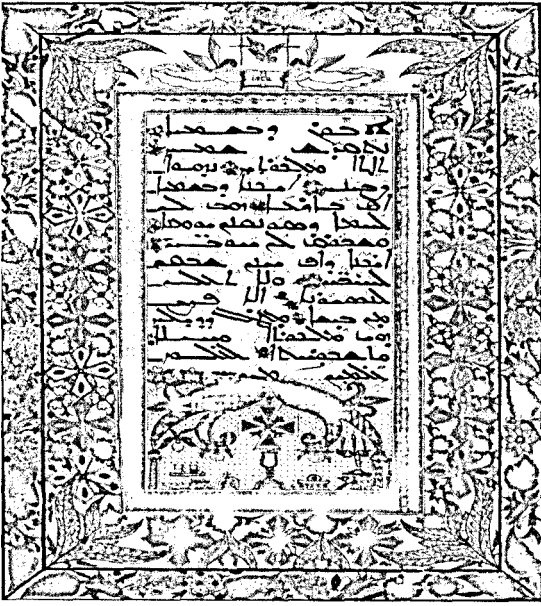 ܐܒܘܢ ܕܒܫܡܝܐ
ܢܬܩܕܫ ܫܡܟ
ܬܐܬܐ ܡܠܟܘܬܟ ܢܗܘܐ
ܨܒܝܢܟ ܐܝܟܢܐ ܕܒܫܡܝܐ
ܐܦ ܒܐܪܥܐ ܘܗܒ ܠܢ
ܠܚܡܐ ܕܣܘܢܩܢܢ ܝܘܡܢܐ
ܘܫܒܘܩ ܠܢ ܚܘܒܝܢ
ܐܝܟܢܐ ܕܐܦ ܚܢܢ ܫܒܩܢ
ܠܚܝܒܝܢ ܘܠܐ ܬܥܠܢ
ܠܢܣܝܘܢܐ ܐܠܐ ܦܨܢ
ܡܢ ܒܝܫܐ ܡܛܠ ܕܕܝܠܟ
ܗܝ ܡܠܟܘܬܐ ܚܝܠܐ
ܘܬܫܒܘܚܬܐ ܠܥܠܡ
ܥܠܡܝܢ